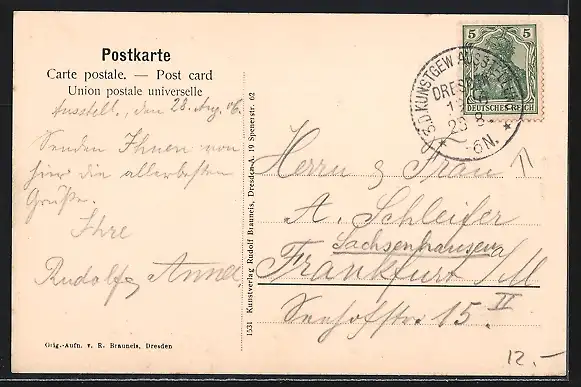 Postkarte
Carte postale. — Post card
Union postale universelle
Ausstell., den 28. Aug. 06.
Senden Ihnen von
hier die allerbesten
Grüße.
Ihre
Rudolf & Annel
Orig.-Aufn. v. R. Brauneis, Dresden
1531 Kunstverlag Rudolf Brauneis, Dresden-A. 19 Spenerstr. 62
5 5
DEUTSCHES REICH
KUNSTGEW. AUSSTELLUNG
DRESDEN
8
6N.
Herrn & Frau
A. Schleifer
Sachsenhausen
Frankfurt a/M
Seehofstr. 15. II
12.-